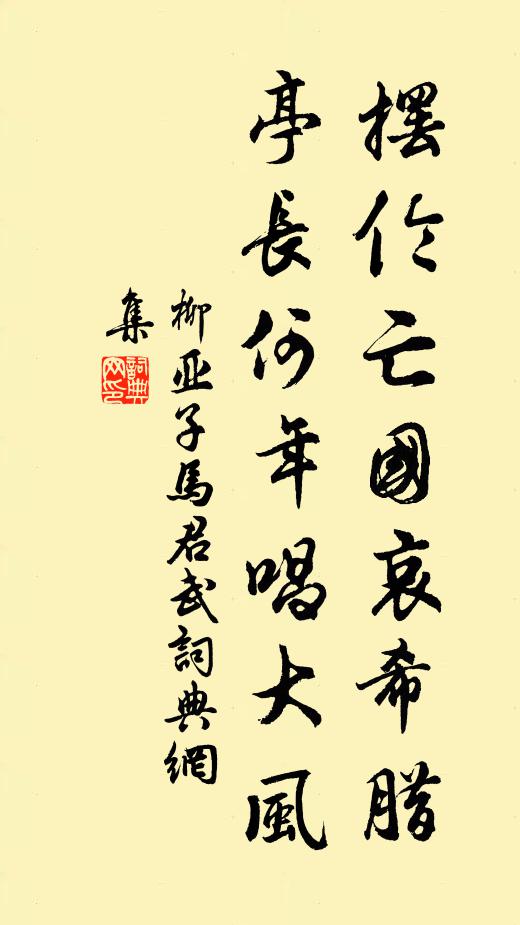 擺伦亡國哀希腊
亭長何年唱大風
柳亚子馬君武詞典網
集
詞典網印